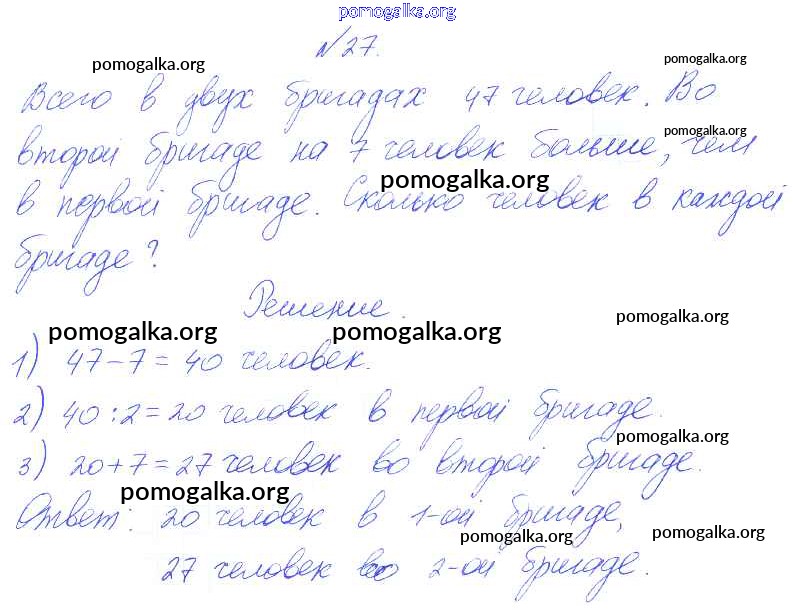 pomogalka.org
№27.
pomogalka.org pomogalka.org
Всего в двух бригадах 47 человек. Во
pomogalka.org
второй бригаде на 7 человек больше, чем
pomogalka.org
в первой бригаде. Сколько человек в каждой
бригаде?
Решение.
pomogalka.org pomogalka.org pomogalka.org
1) 47-7=40 человек.
2) 40:2=20 человек в первой бригаде.
pomogalka.org
3) 20+7=27 человек во второй бригаде.
pomogalka.org
Ответ: 20 человек в 1-ой бригаде,
pomogalka.org pomogalka.org
27 человек во 2-ой бригаде.